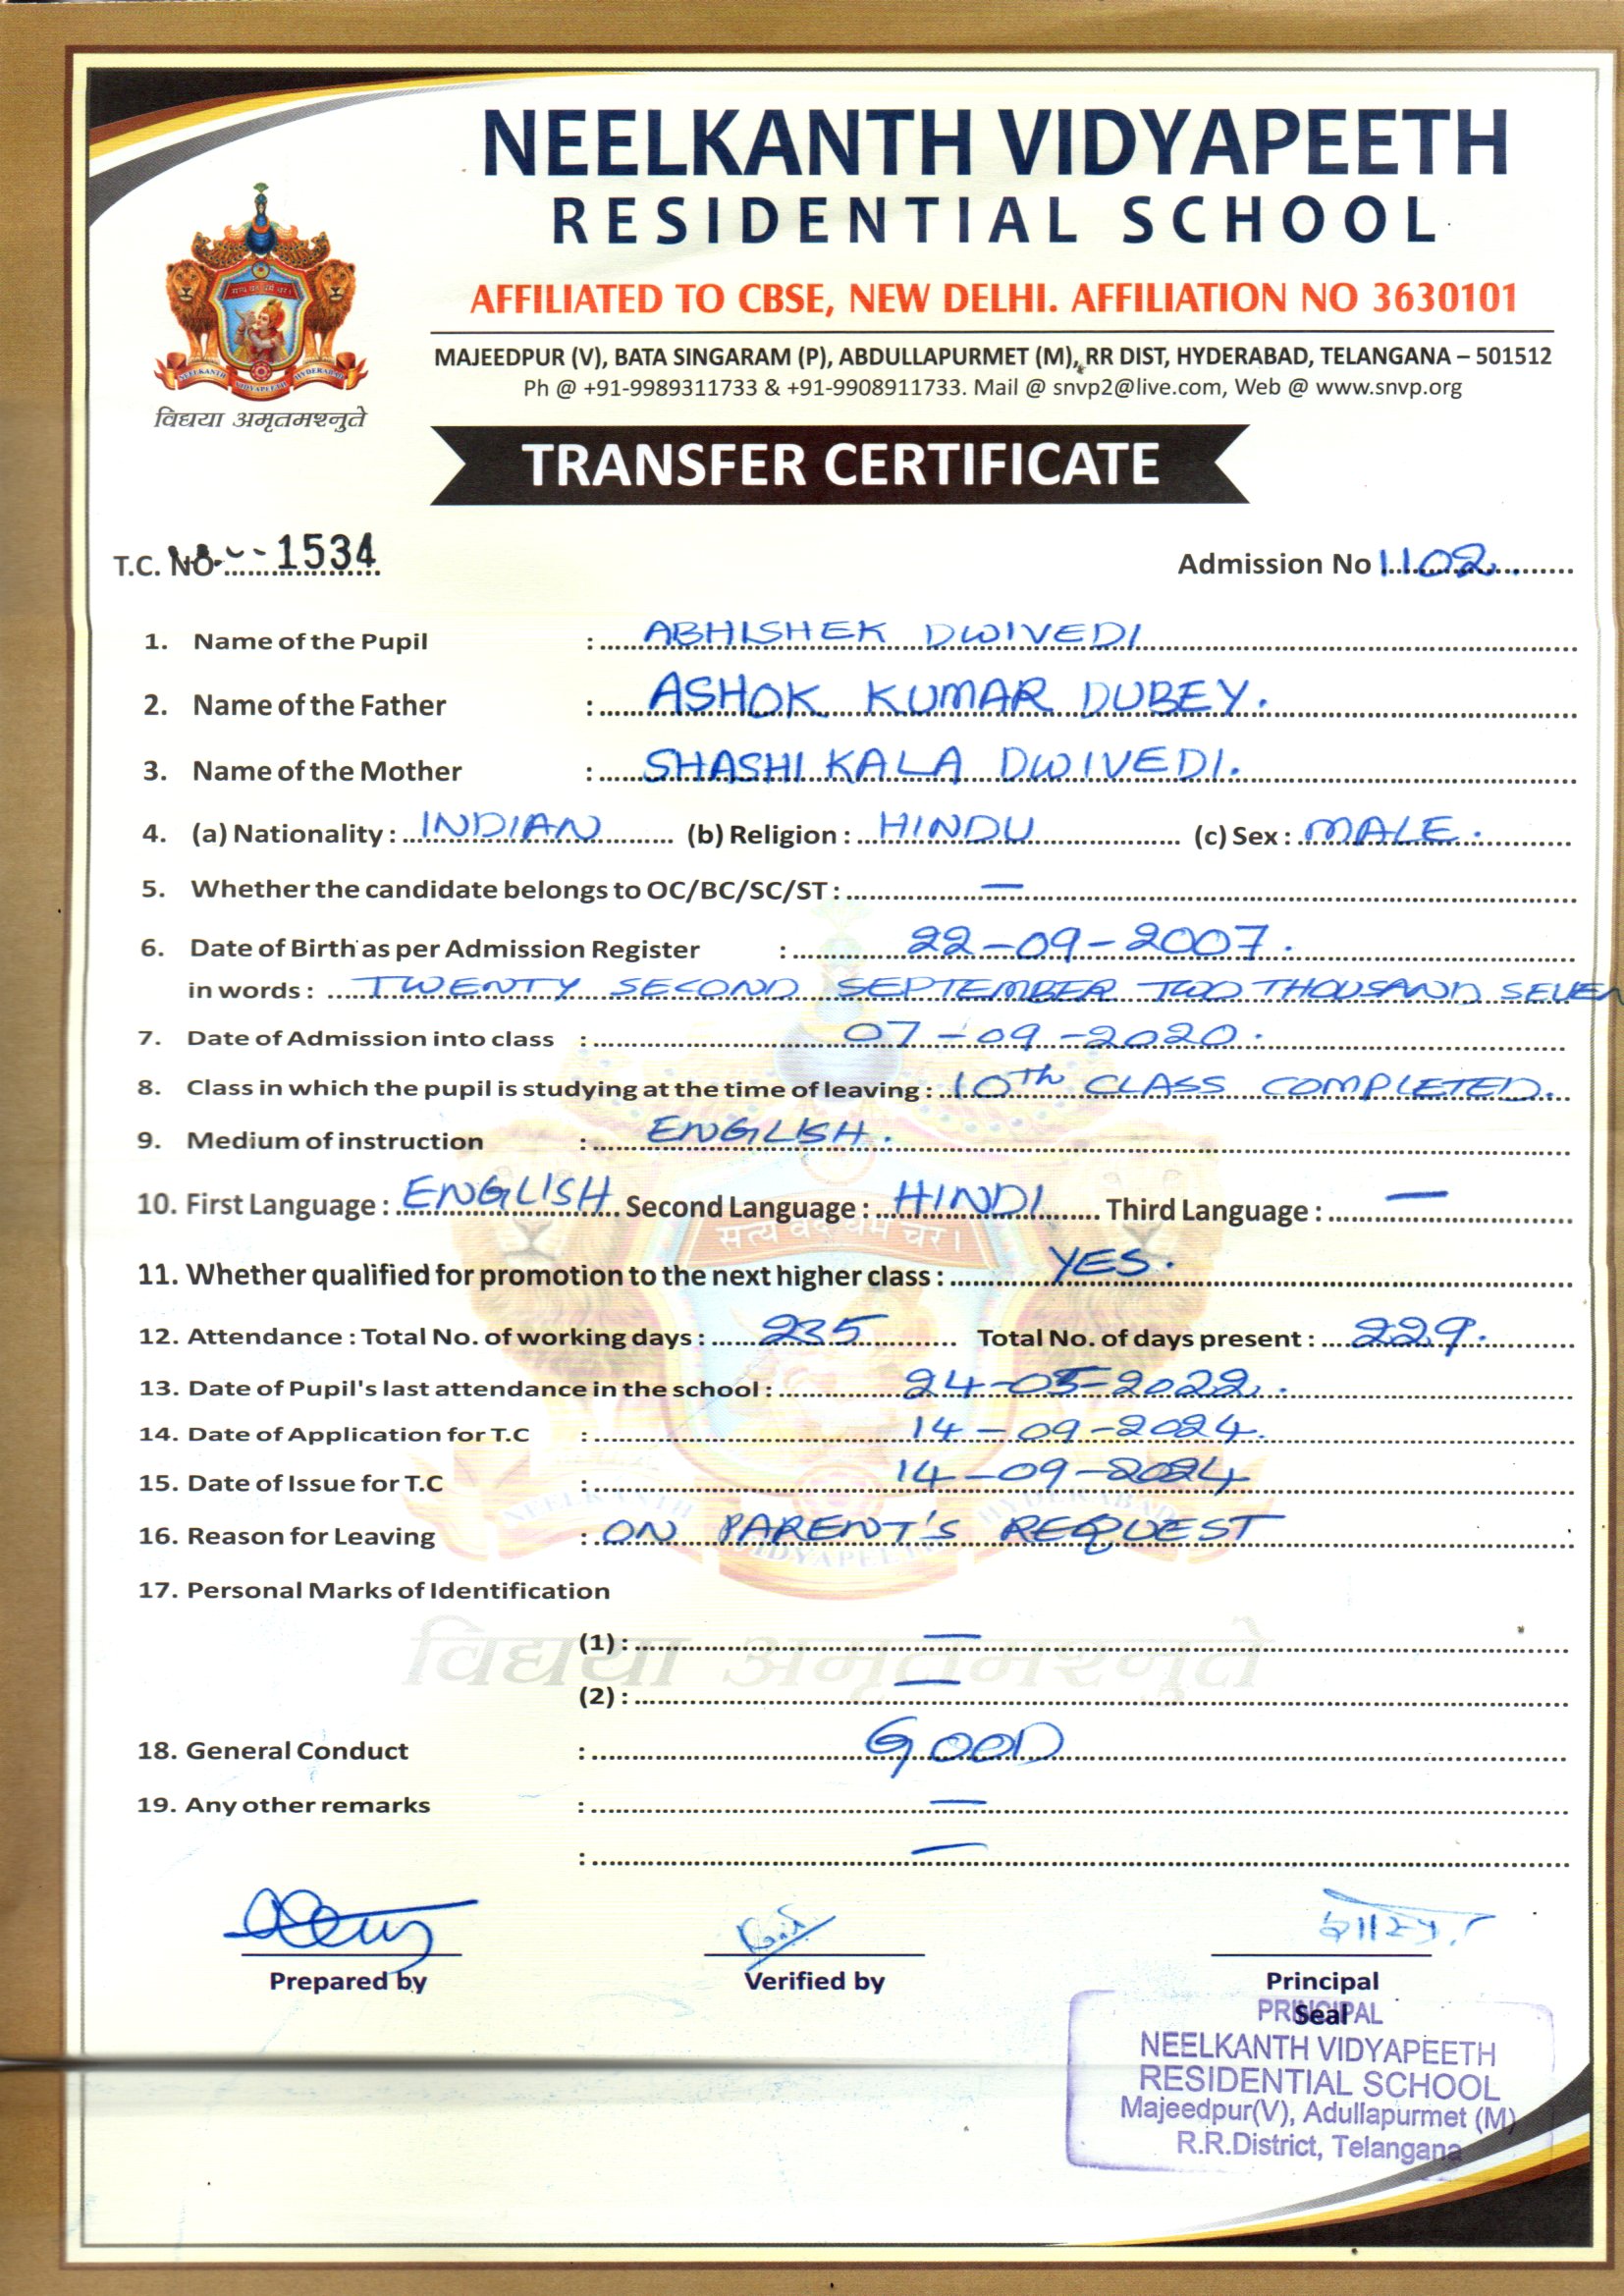 NEELKANTH VIDYAPEETH
RESIDENTIAL SCHOOL
AFFILIATED TO CBSE, NEW DELHI. AFFILIATION NO 3630101
MAJEEDPUR (V), BATA SINGARAM (P), ABDULLAPURMET (M), RR DIST, HYDERABAD, TELANGANA – 501512
Ph @ +91-9989311733 & +91-9908911733. Mail @ snvp2@live.com, Web @ www.snvp.org
सत्यं वद धर्मं चर।
NEELKANTH VIDYAPEETH HYDERABAD
विद्यया अमृतमश्नुते
TRANSFER CERTIFICATE
T.C. NO. 1534 Admission No 1102.
1. Name of the Pupil : ABHISHEK DWIVEDI
2. Name of the Father : ASHOK KUMAR DUBEY.
3. Name of the Mother : SHASHI KALA DWIVEDI.
4. (a) Nationality : INDIAN (b) Religion : HINDU (c) Sex : MALE.
5. Whether the candidate belongs to OC/BC/SC/ST : —
6. Date of Birth as per Admission Register : 22-09-2007.
in words : TWENTY SECOND SEPTEMBER TWO THOUSAND SEVEN
7. Date of Admission into class : 07-09-2020.
8. Class in which the pupil is studying at the time of leaving : 10th CLASS COMPLETED.
9. Medium of instruction : ENGLISH.
10. First Language : ENGLISH Second Language : HINDI Third Language : —
11. Whether qualified for promotion to the next higher class : YES.
12. Attendance : Total No. of working days : 235 Total No. of days present : 229.
13. Date of Pupil's last attendance in the school : 24-05-2022.
14. Date of Application for T.C : 14-09-2024.
15. Date of Issue for T.C : 14-09-2024
16. Reason for Leaving : ON PARENT'S REQUEST
17. Personal Marks of Identification
(1) : —
(2) : —
विद्यया अमृतमश्नुते
18. General Conduct : GOOD
19. Any other remarks : —
: —
Prepared by Verified by Principal
Seal
PRINCIPAL
NEELKANTH VIDYAPEETH
RESIDENTIAL SCHOOL
Majeedpur(V), Adullapurmet (M)
R.R.District, Telangana